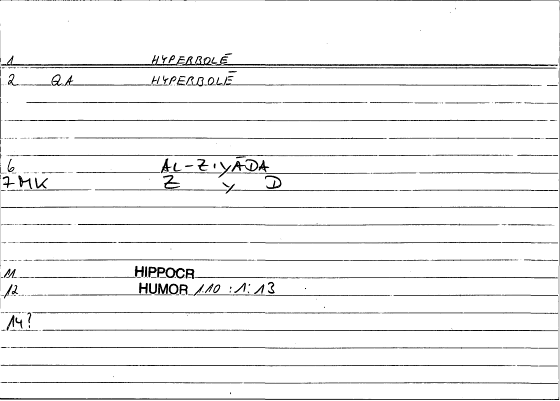 1 HYPERBOLĒ
2 QA HYPERBOLĒ
6 AL-ZIYĀDA
7 MK Z Y D
11 HIPPOCR
12 HUMOR 110 :1: 13
14?